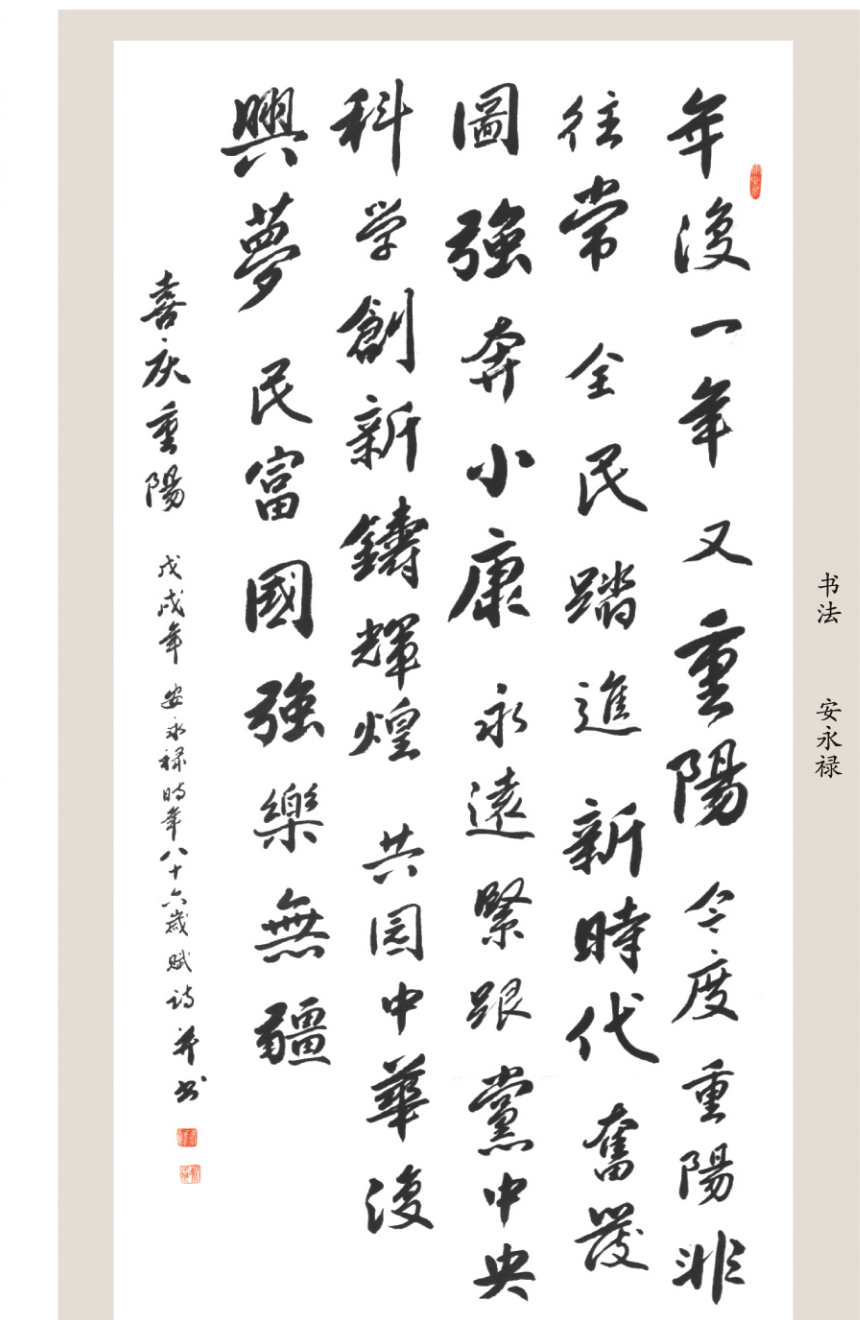 年復一年又重陽今度重陽非
往常全民踏進新時代奮發
圖強奔小康永遠緊跟黨中央
科学創新鑄輝煌共圆中華復
興夢民富國強樂無疆
喜庆重陽
戊戌年安永禄時年八十六歲赋诗并书
书法 安永禄